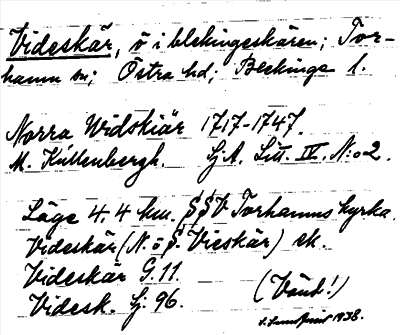 Videskär, ö i blekingeskären; Tor-
hamn sn; Östra hd; Blekinge l.
Norra Widskiär 1717-1747.
M. Kullenbergh. Lj.A. Litt. IV. N:o 2.
Läge 4.4 km. SSV Torhamns kyrka.
Videskär (N. o S. Vieskär) ek.
Videskär G. 11.
Videsk. Sj. 96. (Vänd!)
1938.